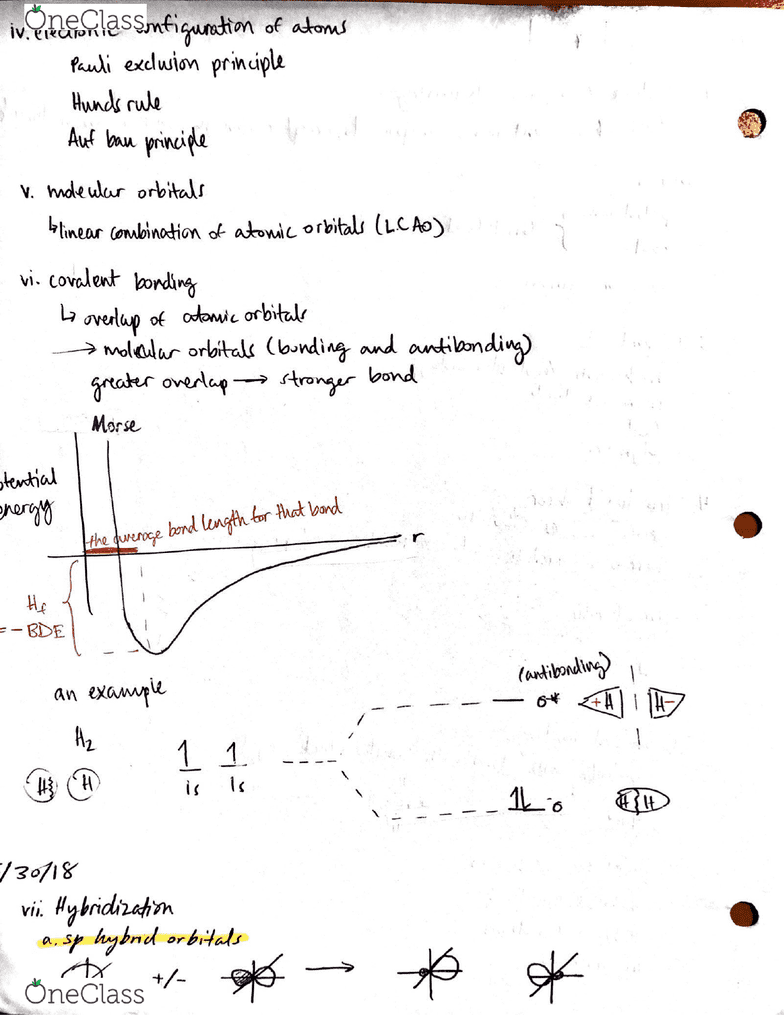 OneClass
iv. electronic configuration of atoms
Pauli exclusion principle
Hunds rule
Auf bau principle
v. molecular orbitals
↳ linear combination of atomic orbitals (LCAO)
vi. covalent bonding
↳ overlap of atomic orbitals
→ molecular orbitals (bonding and antibonding)
greater overlap → stronger bond
Morse
otential
energy
the average bond length for that bond
r
Hf
= - BDE
an example
(antibonding)
σ* +H H-
H2
1 1
H H
1s 1s
1L σ H H
/30/18
vii. Hybridization
a. sp hybrid orbitals
+/- →
OneClass